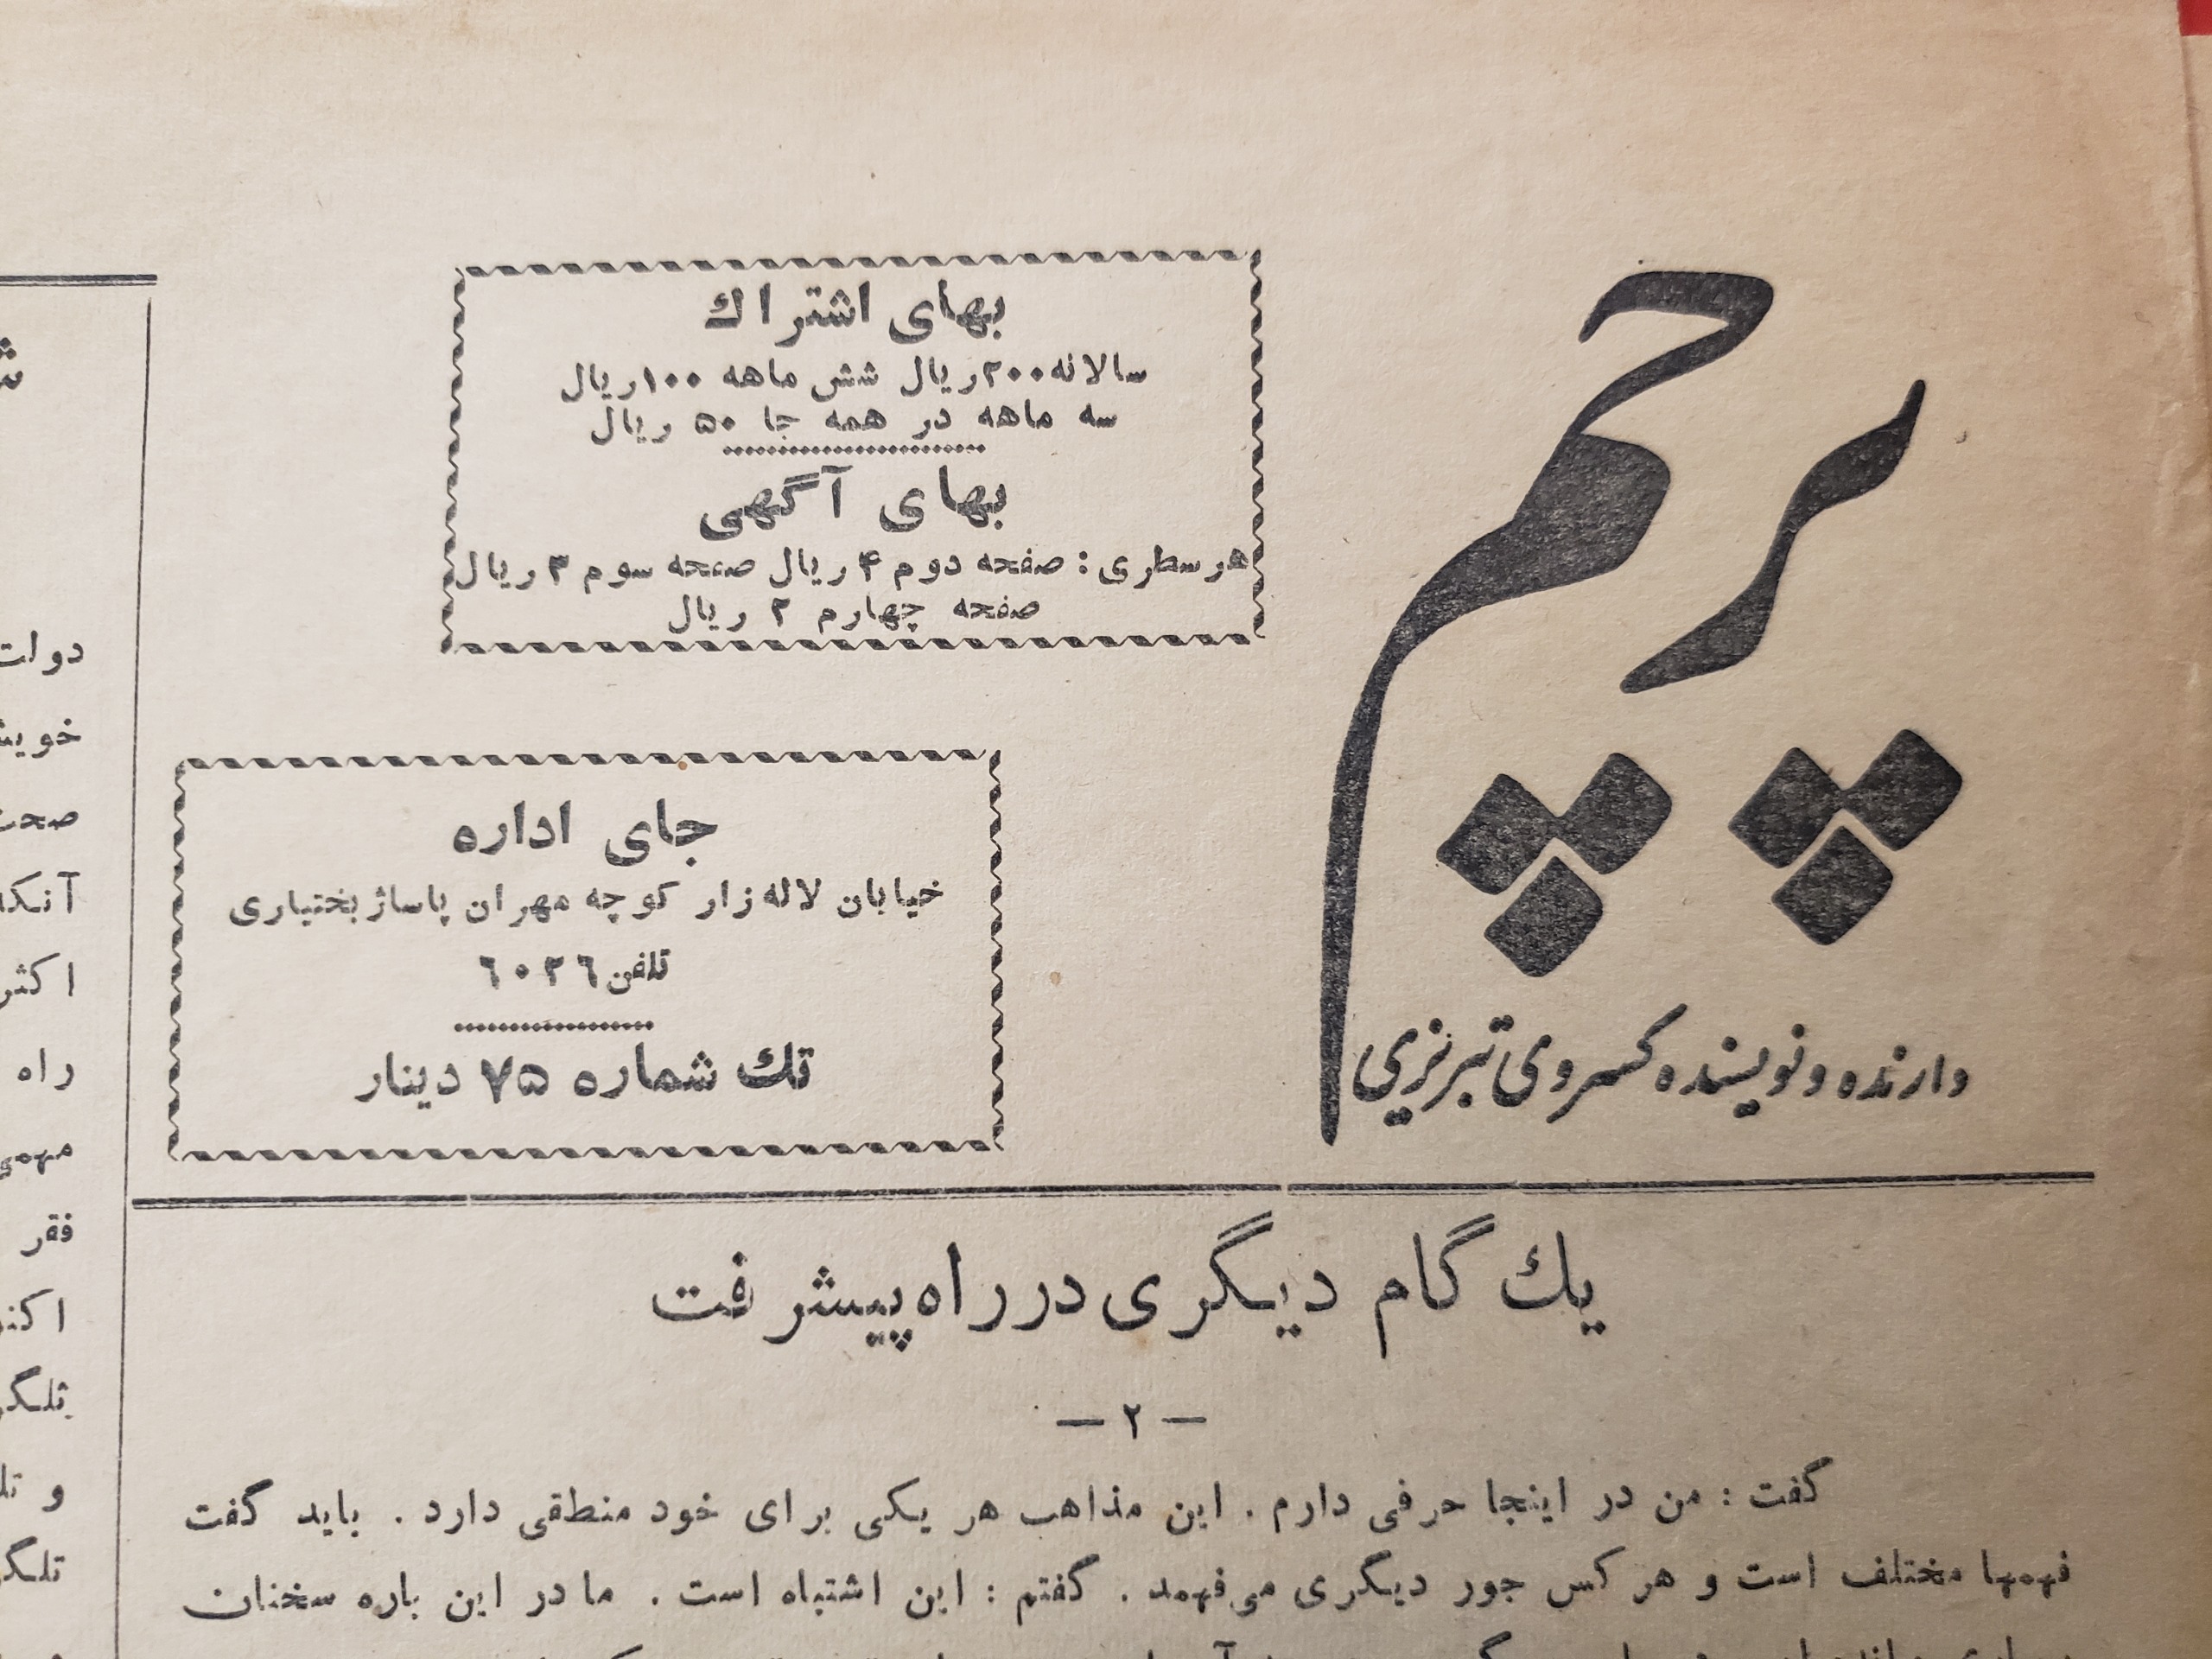 پرچم
دارنده و نویسنده کسروی تبریزی
بهای اشتراك
سالانه ۲۰۰ ریال شش ماهه ۱۰۰ ریال
سه ماهه در همه جا ۵۰ ریال
بهای آگهی
هر سطری : صفحه دوم ۴ ریال صفحه سوم ۳ ریال
صفحه چهارم ۲ ریال
جای اداره
خیابان لاله زار کوچه مهران پاساژ بختیاری
تلفن ٦٠٢٦
تك شماره ۷۵ دینار
یك گام دیگری در راه پیشرفت
— ۲ —
گفت : من در اینجا حرفی دارم . این مذاهب هر یکی برای خود منطقی دارد . باید گفت
فهمها مختلف است و هر کس جور دیگری می‌فهمد . گفتم : این اشتباه است . ما در این باره سخنان
دولت
صحت
آنکه
راه
مهمی
فقر
و